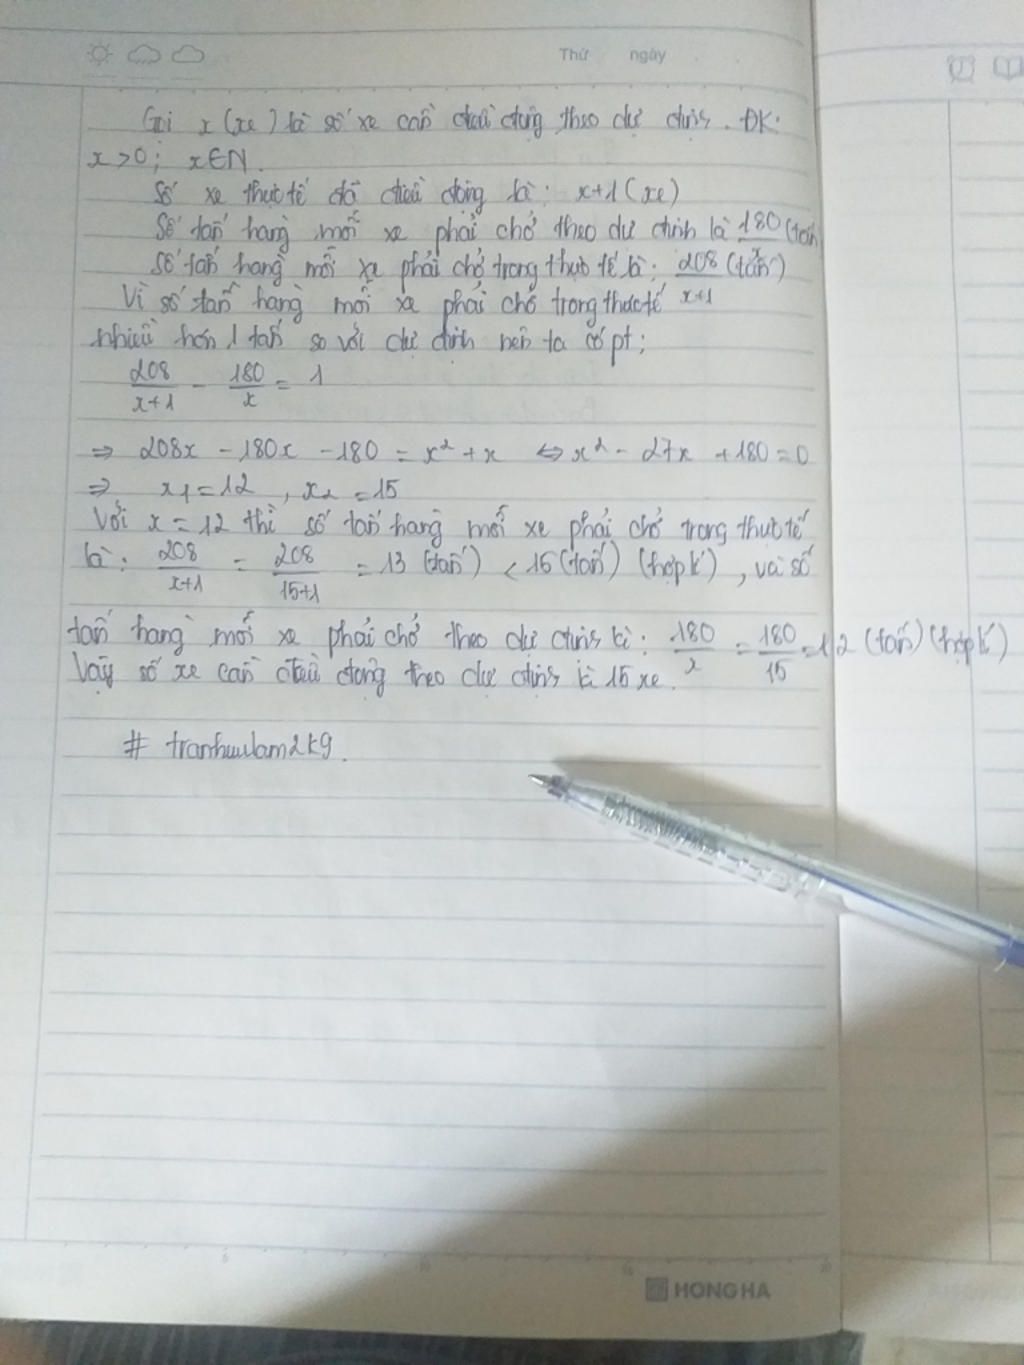 Thứ ngày
Gọi x (xe) là số xe cần điều động theo dự định. ĐK:
x > 0; x ∈ N.
Số xe thực tế đã điều động là: x+1 (xe)
Số tấn hàng mỗi xe phải chở theo dự định là 180/x (tấn)
Số tấn hàng mỗi xe phải chở trong thực tế là: 208/x+1 (tấn)
Vì số tấn hàng mỗi xe phải chở trong thực tế
nhiều hơn 1 tấn so với dự định nên ta có pt:
208/x+1 - 180/x = 1
⇒ 208x - 180x - 180 = x² + x ⇔ x² - 27x + 180 = 0
⇒ x1 = 12, x2 = 15
Với x = 12 thì số tấn hàng mỗi xe phải chở trong thực tế
là: 208/x+1 = 208/15+1 = 13 (tấn) < 15 (tấn) (hợp lí), và số
tấn hàng mỗi xe phải chở theo dự định là: 180/x = 180/15 = 12 (tấn) (hợp lí)
Vậy số xe cần điều động theo dự định là 15 xe.
# tranhuulam2k9.
HONG HA